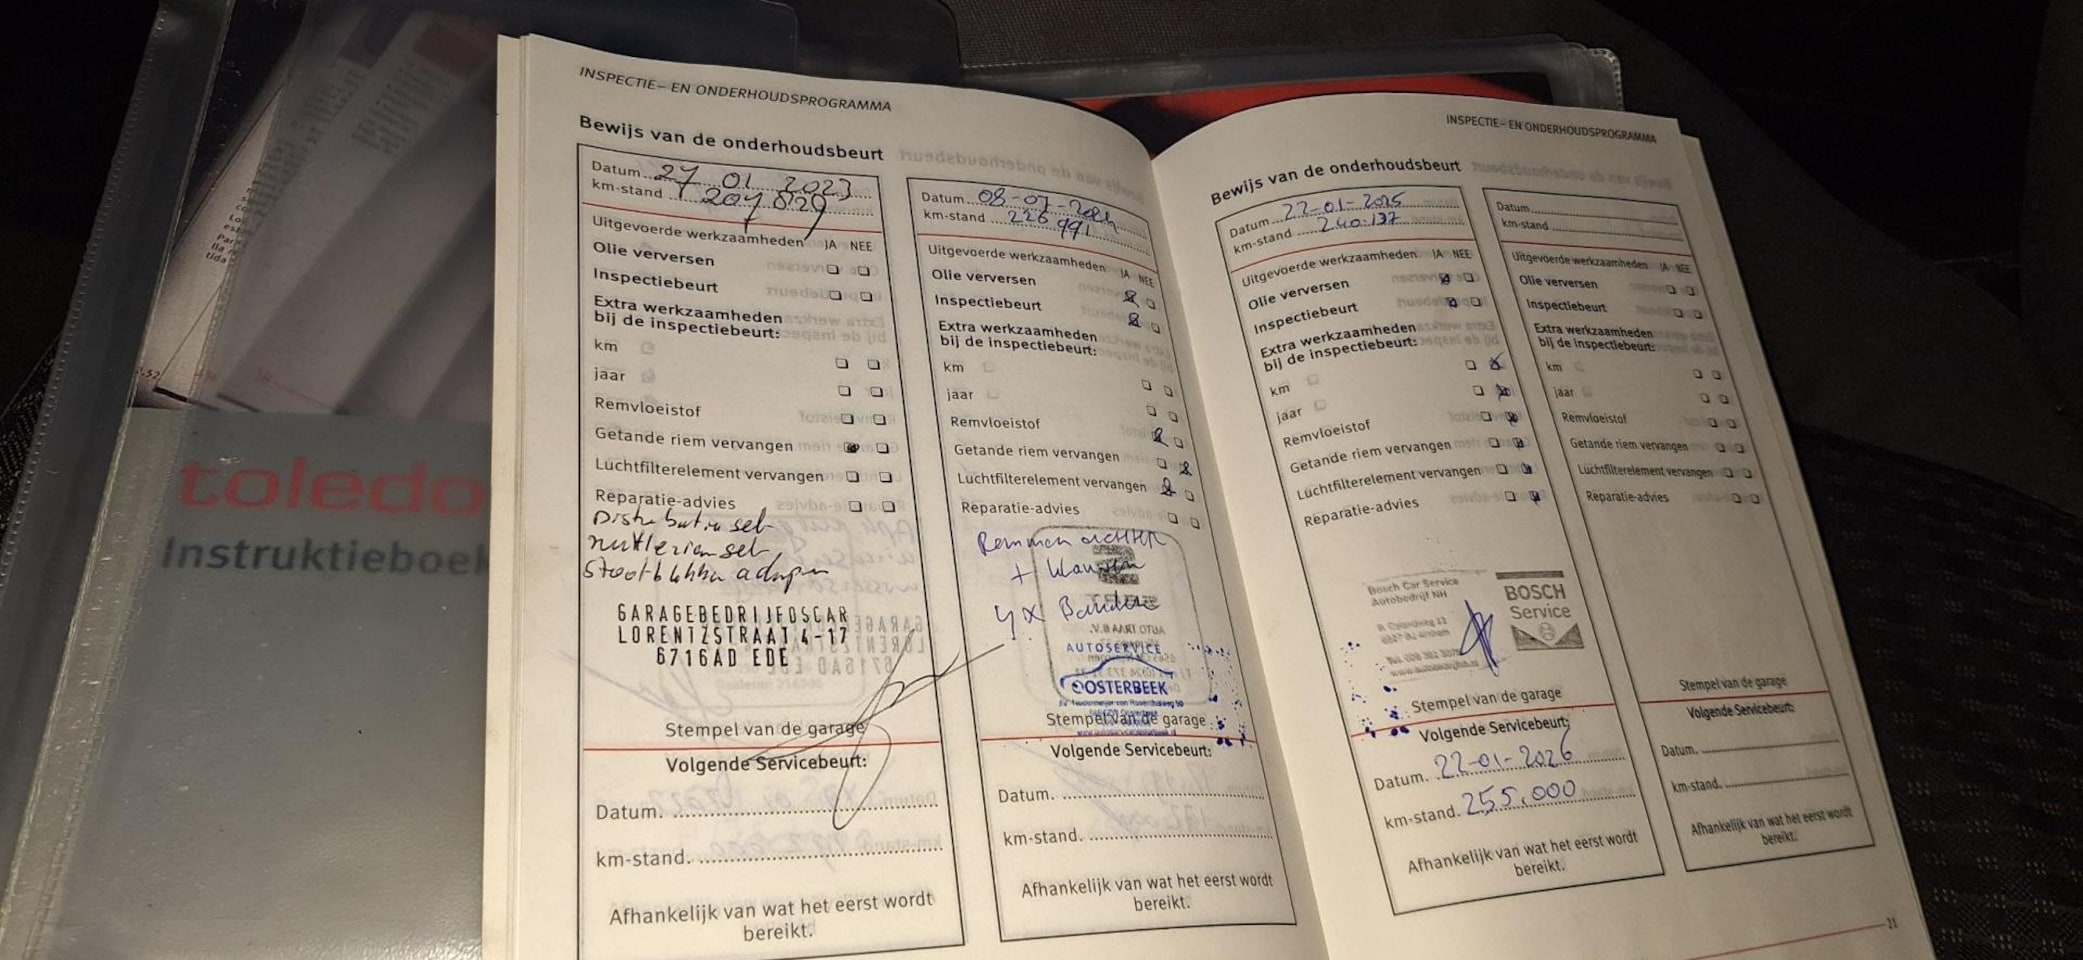 INSPECTIE- EN ONDERHOUDSPROGRAMMA
Bewijs van de onderhoudsbeurt
Datum 27 01 2023
km-stand 207 829
Uitgevoerde werkzaamheden JA NEE
Olie verversen
Inspectiebeurt
Extra werkzaamheden
bij de inspectiebeurt:
km
jaar
Remvloeistof
Getande riem vervangen
Luchtfilterelement vervangen
Reparatie-advies
Distributie set
GARAGEBEDRIJFOSCAR
LORENTZSTRAAT 4-17
6716AD EDE
Stempel van de garage
Volgende Servicebeurt:
Datum.
km-stand.
Afhankelijk van wat het eerst wordt
bereikt.
Datum 08-07-2024
km-stand 226 991
Uitgevoerde werkzaamheden JA NEE
Olie verversen
Inspectiebeurt
Extra werkzaamheden
bij de inspectiebeurt:
km
jaar
Remvloeistof
Getande riem vervangen
Luchtfilterelement vervangen
Reparatie-advies
Remmen achter
+ klauwen
4x Banden
AUTOSERVICE
OOSTERBEEK
Stempel van de garage
Volgende Servicebeurt:
Datum.
km-stand.
Afhankelijk van wat het eerst wordt
bereikt.
INSPECTIE- EN ONDERHOUDSPROGRAMMA
Bewijs van de onderhoudsbeurt
Datum 22-01-2025
km-stand 240.137
Uitgevoerde werkzaamheden JA NEE
Olie verversen
Inspectiebeurt
Extra werkzaamheden
bij de inspectiebeurt:
km
jaar
Remvloeistof
Getande riem vervangen
Luchtfilterelement vervangen
Reparatie-advies
Bosch Car Service
Autobedrijf NH
BOSCH
Service
Stempel van de garage
Volgende Servicebeurt:
Datum. 22-01-2026
km-stand. 255.000
Afhankelijk van wat het eerst wordt
bereikt.
Datum
km-stand
Uitgevoerde werkzaamheden JA NEE
Olie verversen
Inspectiebeurt
Extra werkzaamheden
bij de inspectiebeurt:
km
jaar
Remvloeistof
Getande riem vervangen
Luchtfilterelement vervangen
Reparatie-advies
Stempel van de garage
Volgende Servicebeurt:
Datum.
km-stand.
Afhankelijk van wat het eerst wordt
bereikt.
21
toledo
Instruktieboek